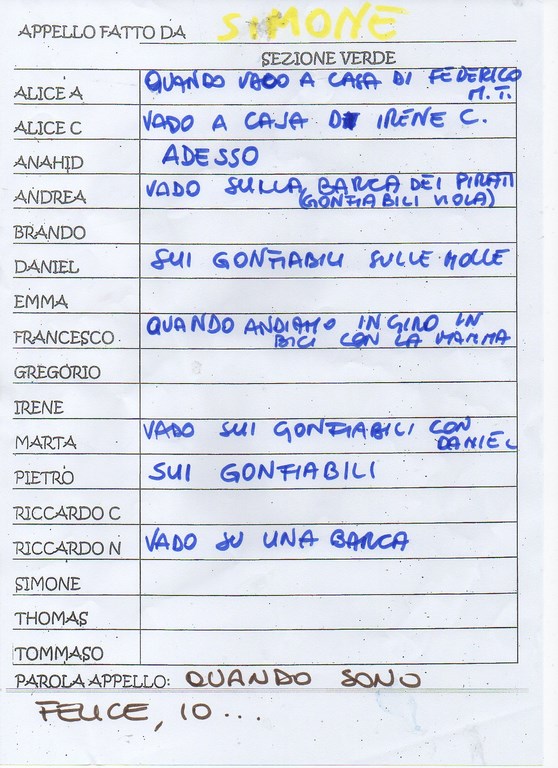 APPELLO FATTO DA SIMONE
SEZIONE VERDE
ALICE A QUANDO VADO A CASA DI FEDERICO
M.T.
ALICE C VADO A CASA DI IRENE C.
ANAHID ADESSO
ANDREA VADO SULLA BARCA DEI PIRATI
(GONFIABILI VIOLA)
BRANDO
DANIEL SUI GONFIABILI SULLE MOLLE
EMMA
FRANCESCO QUANDO ANDIAMO IN GIRO IN
BICI CON LA MAMMA
GREGORIO
IRENE
MARTA VADO SUI GONFIABILI CON
DANIEL
PIETRO SUI GONFIABILI
RICCARDO C
RICCARDO N VADO SU UNA BARCA
SIMONE
THOMAS
TOMMASO
PAROLA APPELLO: QUANDO SONO
FELICE, IO...